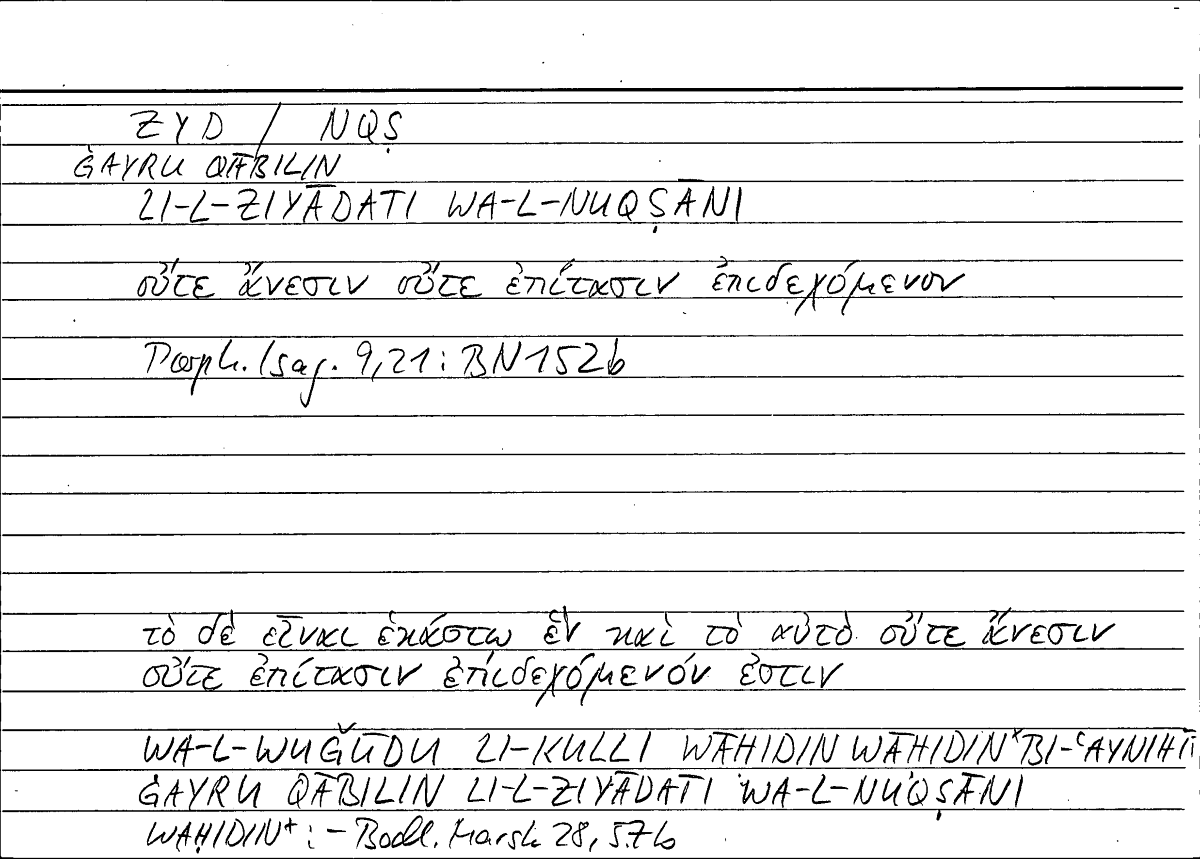 ZYD / NQṢ
ĠAYRU QĀBILIN
LI-L-ZIYĀDATI WA-L-NUQṢĀNI
οὔτε ἄνεσιν οὔτε ἐπίτασιν ἐπιδεχόμενον
Porph. Isag. 9,21: BN 152b
τὸ δὲ εἶναι ἑκάστῳ ἓν καὶ τὸ αὐτὸ οὔτε ἄνεσιν
οὔτε ἐπίτασιν ἐπιδεχόμενόν ἐστιν
WA-L-WUǦŪDU LI-KULLI WĀHIDIN WĀHIDIN⁺ BI-ʿAYNIHĪ
ĠAYRU QĀBILIN LI-L-ZIYĀDATI WA-L-NUQṢĀNI
WAḤIDIN⁺: – Bodl. Marsh 28, 57b